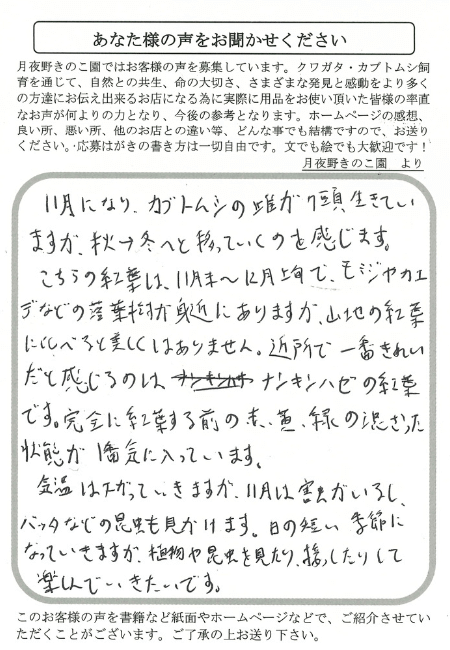 あなた様の声をお聞かせください
月夜野きのこ園ではお客様の声を募集しています。クワガタ・カブトムシ飼
育を通じて、自然との共生、命の大切さ、さまざまな発見と感動をより多く
の方達にお伝え出来るお店になる為に実際に用品をお使い頂いた皆様の率直
なお声が何よりの力となり、今後の参考となります。ホームページの感想、
良い所、悪い所、他のお店との違い等、どんな事でも結構ですので、お送り
ください。応募はがきの書き方は一切自由です。文でも絵でも大歓迎です！
月夜野きのこ園　より
11月になり、カブトムシの雌が7頭生きてい
ますが、秋→冬へと移っていくのを感じます。
こちらの紅葉は、11月末〜12月上旬で、モミジやカエ
デなどの落葉樹が身近にありますが、山地の紅葉
にくらべると美しくはありません。近所で一番きれい
だと感じるのは、ナンキンハゼの紅葉
です。完全に紅葉する前の赤、黄、緑の混ざった
状態が1番気に入っています。
気温は下がっていきますが、11月は害虫がいるし、
バッタなどの昆虫も見かけます。日の短い季節に
なっていきますが、植物や昆虫を見たり、探したりして
楽しんでいきたいです。
このお客様の声を書籍など紙面やホームページなどで、ご紹介させてい
ただくことがございます。ご了承の上お送り下さい。